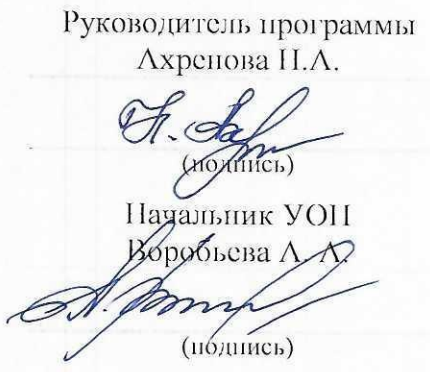 Руководитель программы
Ахренова Н.А.
(подпись)
Начальник УОП
Воробьева А. А.
(подпись)